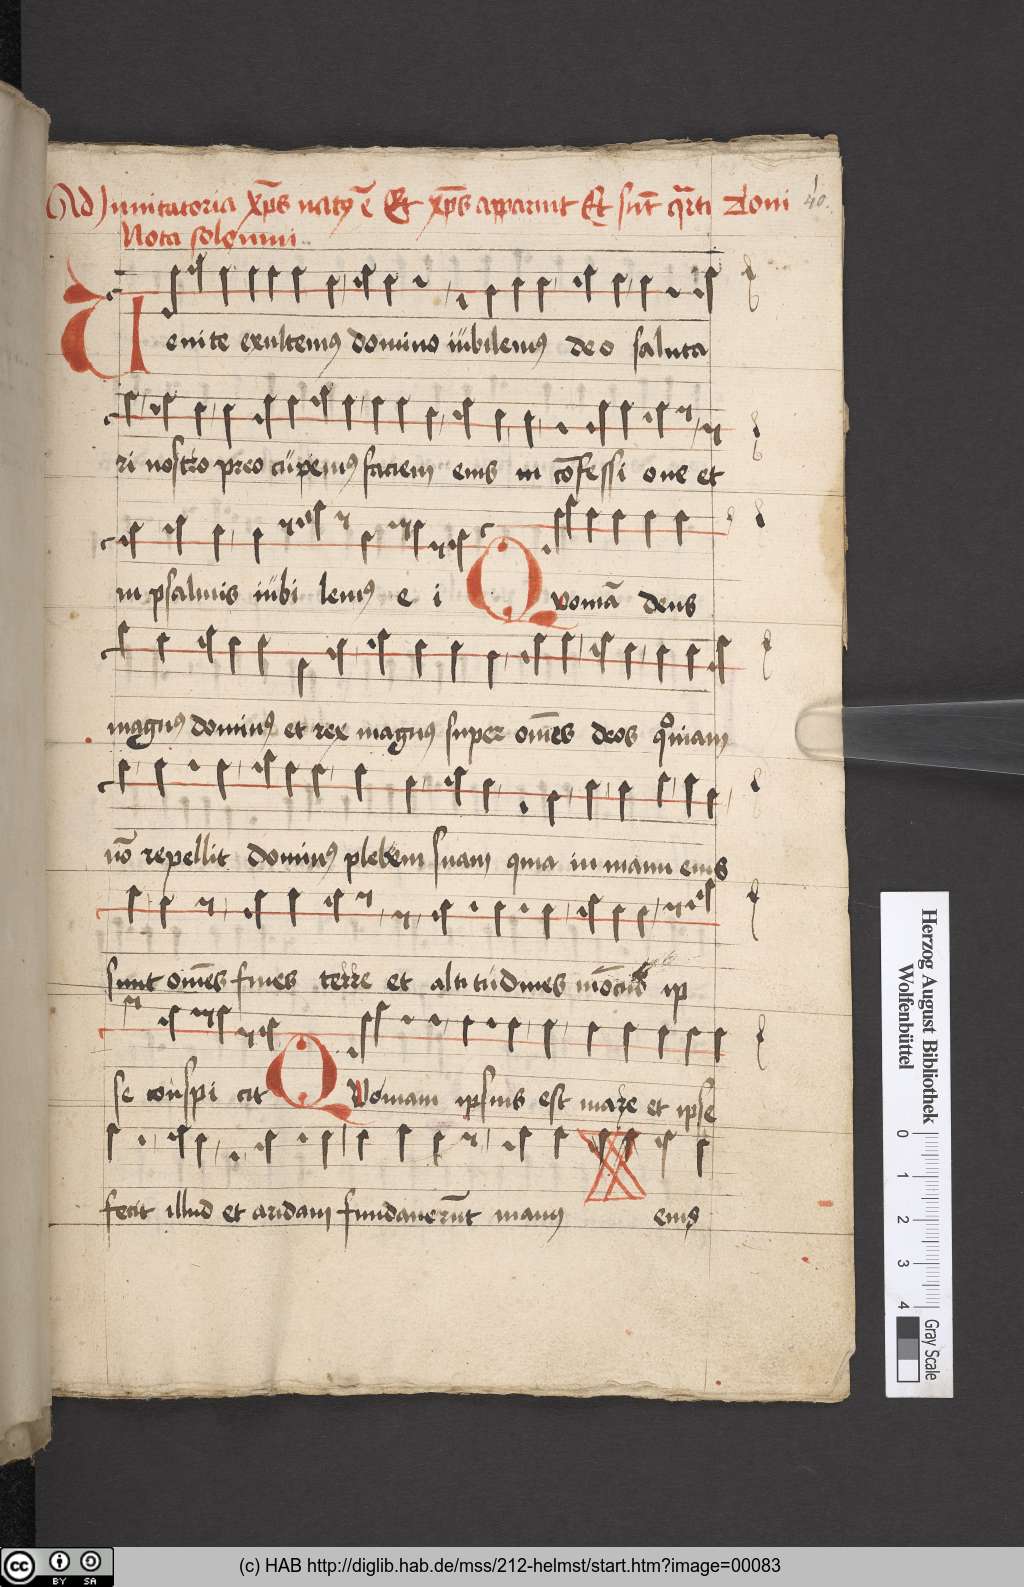 Ad Inuitatoria xp̄s natꝰ ē Et xp̄s apparuit Et sūt q̄rti Toni
Nota solenni
40.
Venite exultemꝰ domino iubilemꝰ deo saluta
ri nostro preo cupemꝰ faciem eius in cōfessi one et
in psalmis iubi lemꝰ e i Quoniā deus
magnꝰ dominꝰ et rex magnꝰ super om̄es deos qͦniam
nō repellit dominꝰ plebem suam quia in manu eius
sunt om̄es fines terre et altitudines mōciū ip
se conspi cit Quoniam ipsius est mare et ipse
fecit illud et aridam fundauerūt manꝰ eius
Herzog August Bibliothek
Wolfenbüttel
0 1 2 3 4
Gray Scale
cc BY SA
(c) HAB http://diglib.hab.de/mss/212-helmst/start.htm?image=00083